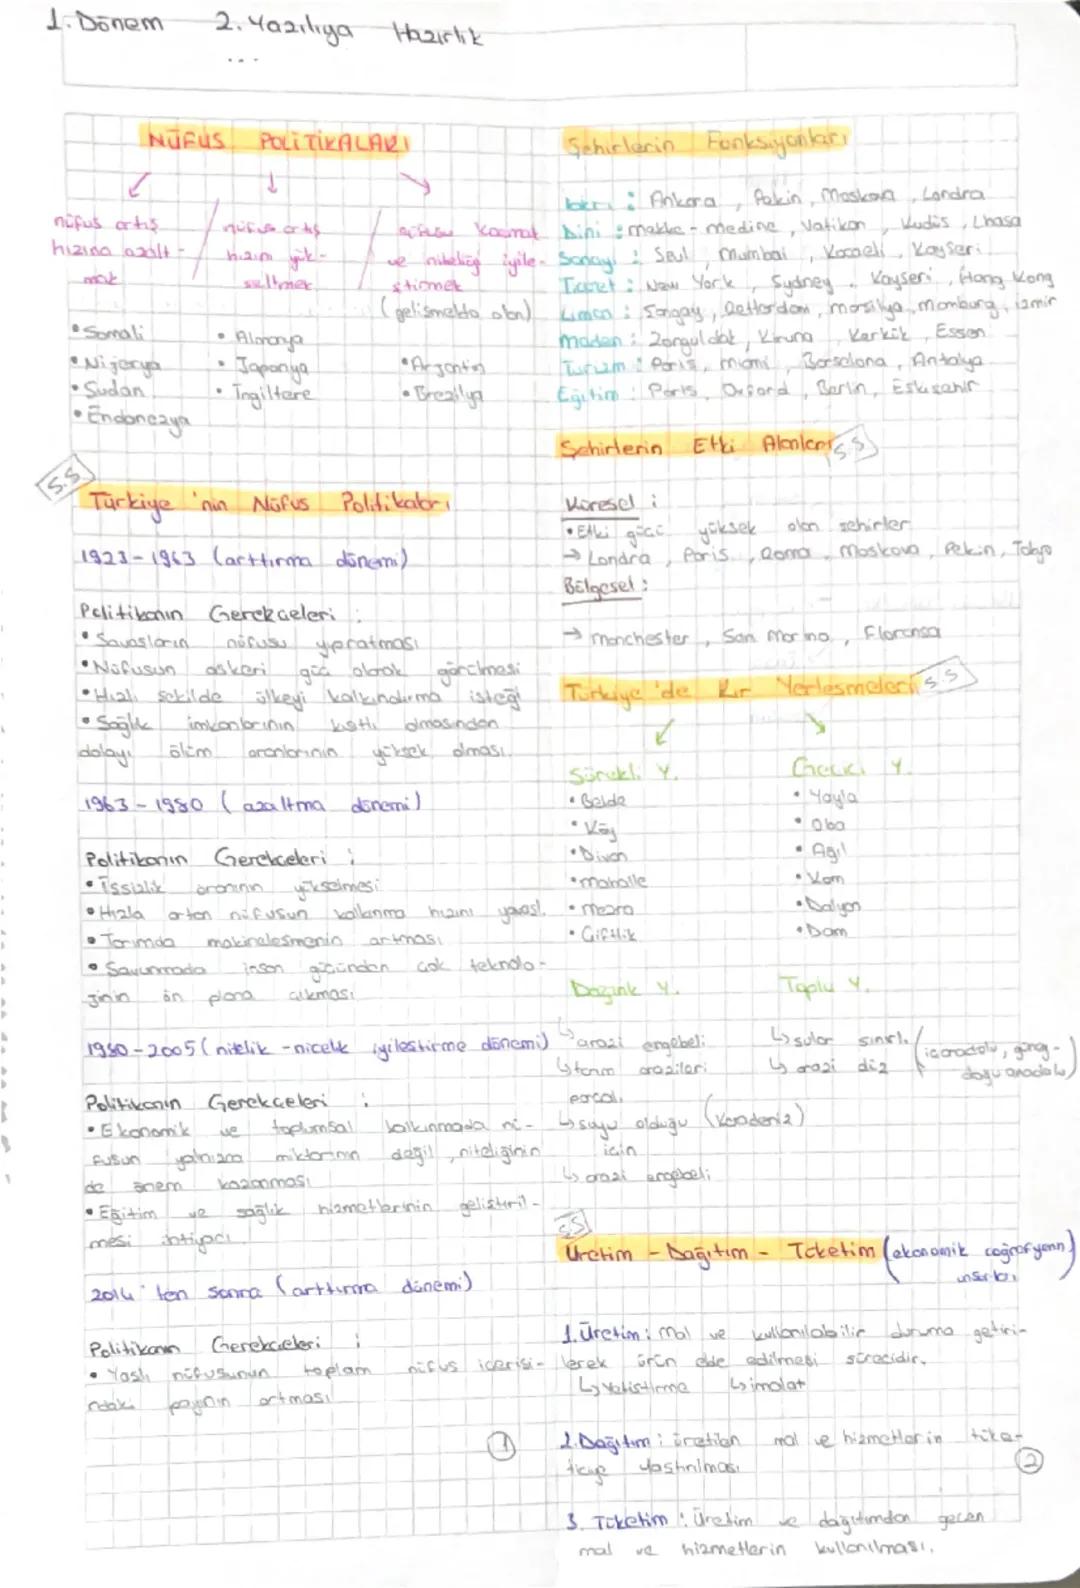 1. Dönem 2. Yazılıya Hazırlık
...
NÜFUS POLİTİKALARI
nüfus artış
hızına azalt-
mak
• Somali
• Nijerya
• Sudan
• Endonezya
nüfus artış
hızını yük-
seltmek
• Almanya
• Japonya
• İngiltere
nüfusu korumak
ve niteliği iyile-
ştirmek
(gelişmekte olan)
• Arjantin
• Brezilya
S.S
Türkiye'nin Nüfus Politikaları
1923-1963 (arttırma dönemi)
Politikanın Gerekçeleri :
• Savaşların nüfusu yıpratması
• Nüfusun askeri güç olarak görülmesi
• Hızlı şekilde ülkeyi kalkındırma isteği
• Sağlık imkanlarının kısıtlı olmasından
dolayı ölüm oranlarının yüksek olması.
1963-1980 (azaltma dönemi)
Politikanın Gerekçeleri :
• İşsizlik oranının yükselmesi
• Hızla artan nüfusun kalkınma hızını yavaşl.
• Tarımda makineleşmenin artması
• Savunmada insan gücünden çok teknolo-
jinin ön plana çıkması
1980-2005 (nitelik-nicelik iyileştirme dönemi)
Politikanın Gerekçeleri :
• Ekonomik ve toplumsal kalkınmada nü-
fusun yalnızca miktarının değil, niteliğinin
de önem kazanması
• Eğitim ve sağlık hizmetlerinin geliştiril-
mesi ihtiyacı
2014'ten sonra (arttırma dönemi)
Politikanın Gerekçeleri :
• Yaşlı nüfusunun toplam nüfus içerisi-
ndeki payının artması
1
Şehirlerin Fonksiyonları
İdari : Ankara, Pekin, Moskova, Londra
Dini : Mekke-Medine, Vatikan, Kudüs, Lhasa
Sanayi : Seul, Mumbai, Kocaeli, Kayseri
Ticaret : New York, Sydney, Kayseri, Hong Kong
Liman : Şangay, Rotterdam, Marsilya, Hamburg, İzmir
Maden : Zonguldak, Kiruna, Kerkük, Essen
Turizm : Paris, Miami, Barselona, Antalya
Eğitim : Paris, Oxford, Berlin, Eskişehir
Şehirlerin Etki Alanları S.S
Küresel :
• Etki gücü yüksek olan şehirler
→ Londra, Paris, Roma, Moskova, Pekin, Tokyo
Bölgesel :
→ Manchester, San Marino, Floransa
Türkiye'de Kır Yerleşmeleri S.S
Sürekli Y.
• Belde
• Köy
• Divan
• Mahalle
• Mezra
• Çiftlik
Geçici Y.
• Yayla
• Oba
• Ağıl
• Kom
• Dalyan
• Dam
Dağınık Y.
↳ arazi engebeli
↳ tarım arazileri
parçalı
↳ suyu olduğu (Karadeniz)
için
↳ arazi engebeli
Toplu Y.
↳ sular sınırlı
↳ arazi düz
(içanadolu, güney-
doğu anadolu)
S.S
Üretim - Dağıtım - Tüketim (ekonomik coğrafyanın
unsurları)
1. Üretim : Mal ve kullanılabilir duruma getiri-
lerek ürün elde edilmesi sürecidir.
↳ Yetiştirme ↳ imalat
2. Dağıtım : üretilen mal ve hizmetlerin tüke-
ticiye ulaştırılması.
2
3. Tüketim : Üretim ve dağıtımdan geçen
mal ve hizmetlerin kullanılması.